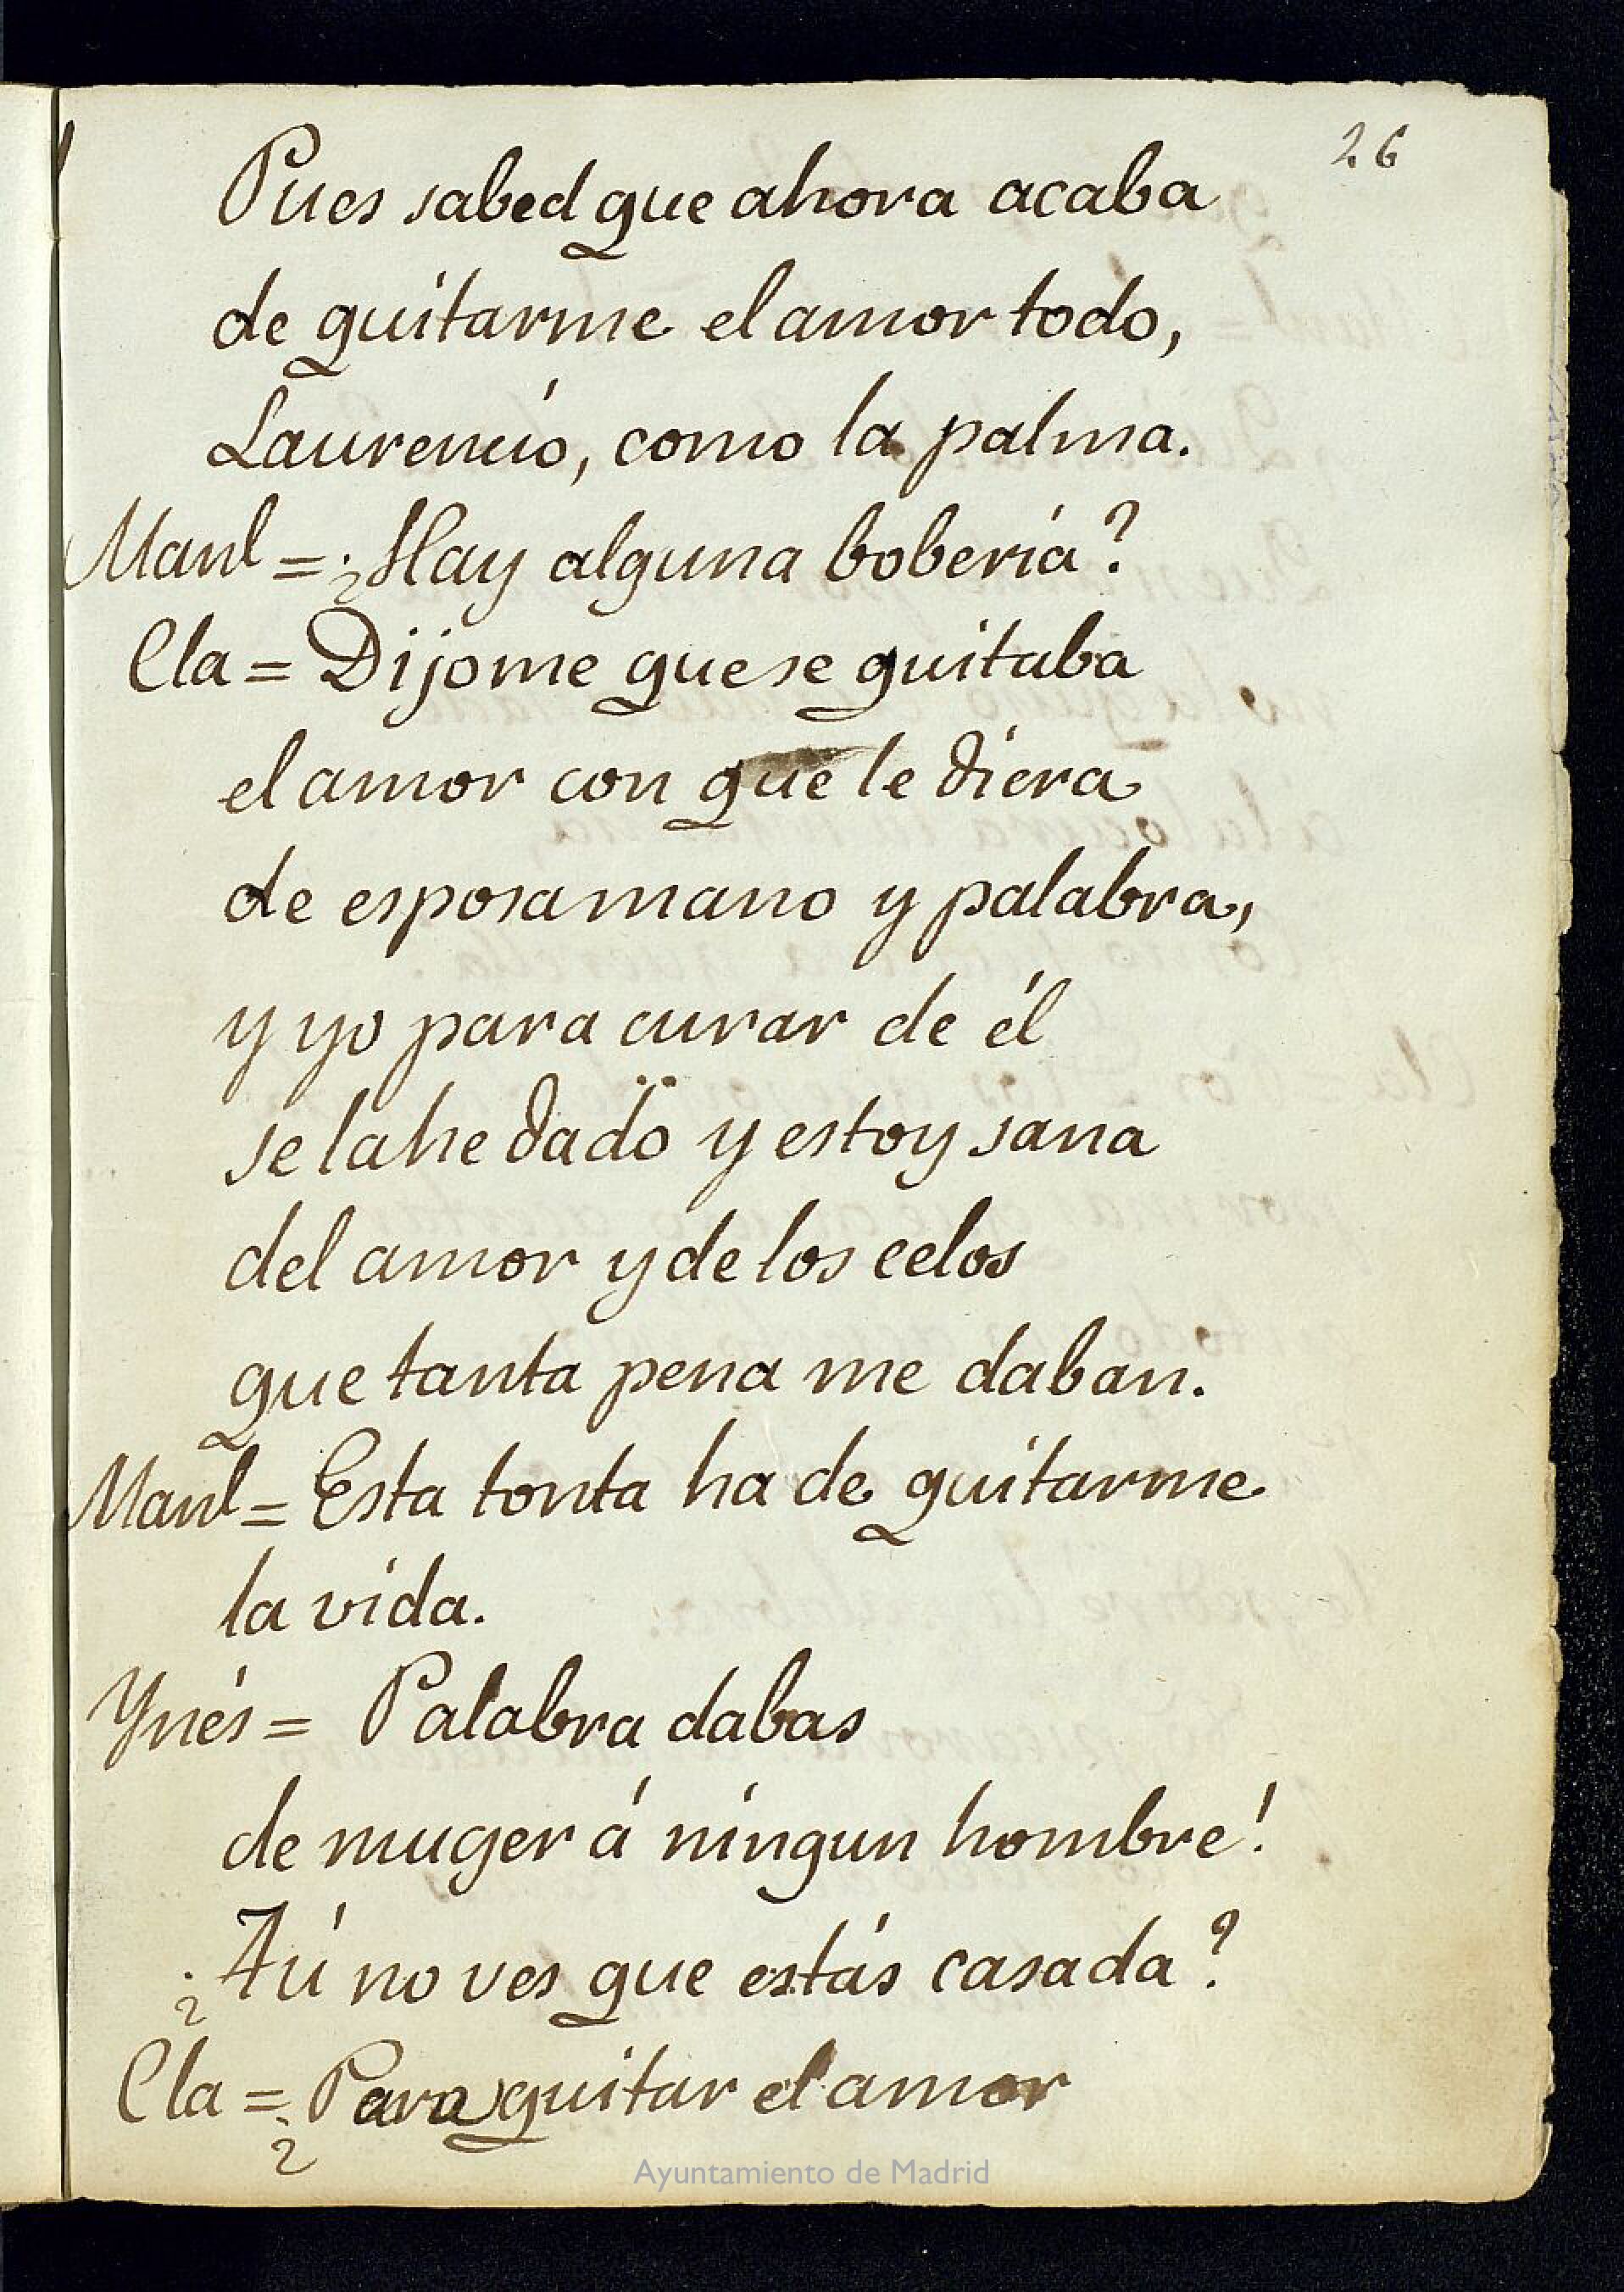 26
Pues sabed que ahora acaba
de quitarme el amor todo,
Laurencio, como la palma.
Manl = ¿Hay alguna bobería?
Cla = Dijome que se quitaba
el amor con que le diera
de esposa mano y palabra,
y yo para curar de él
se la he dado y estoy sana
del amor y de los celos
que tanta pena me daban.
Manl = Esta tonta ha de quitarme
la vida.
Ynés = Palabra dabas
de muger á ningun hombre!
¿Tú no ves que estás casada?
Cla = ¿Para quitar el amor
Ayuntamiento de Madrid